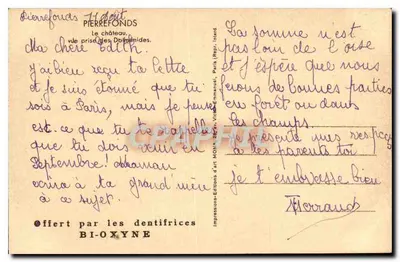 Pierrefonds 11 Août
PIERREFONDS
Le château,
vue prise des Dolménides.
Ma chère Edith.
J'ai bien reçu ta lettre
et je suis étonné que tu
sois à Paris, mais je pense
est-ce que tu te rappelles
que tu dois venir en
Septembre! Maman
écrira à ta grand'mère
à ce sujet.
Offert par les dentifrices
BI-OXYNE
Impressions-Editions d'Art Victor Emmanuel, Paris (Repr. interd.
La somme n'est
pas loin de l'oise
et j'espère que nous
ferons de bonnes parties
en forêt ou dans
les champs.
présente mes respects
à tes parents toi
je t'embrasse bien